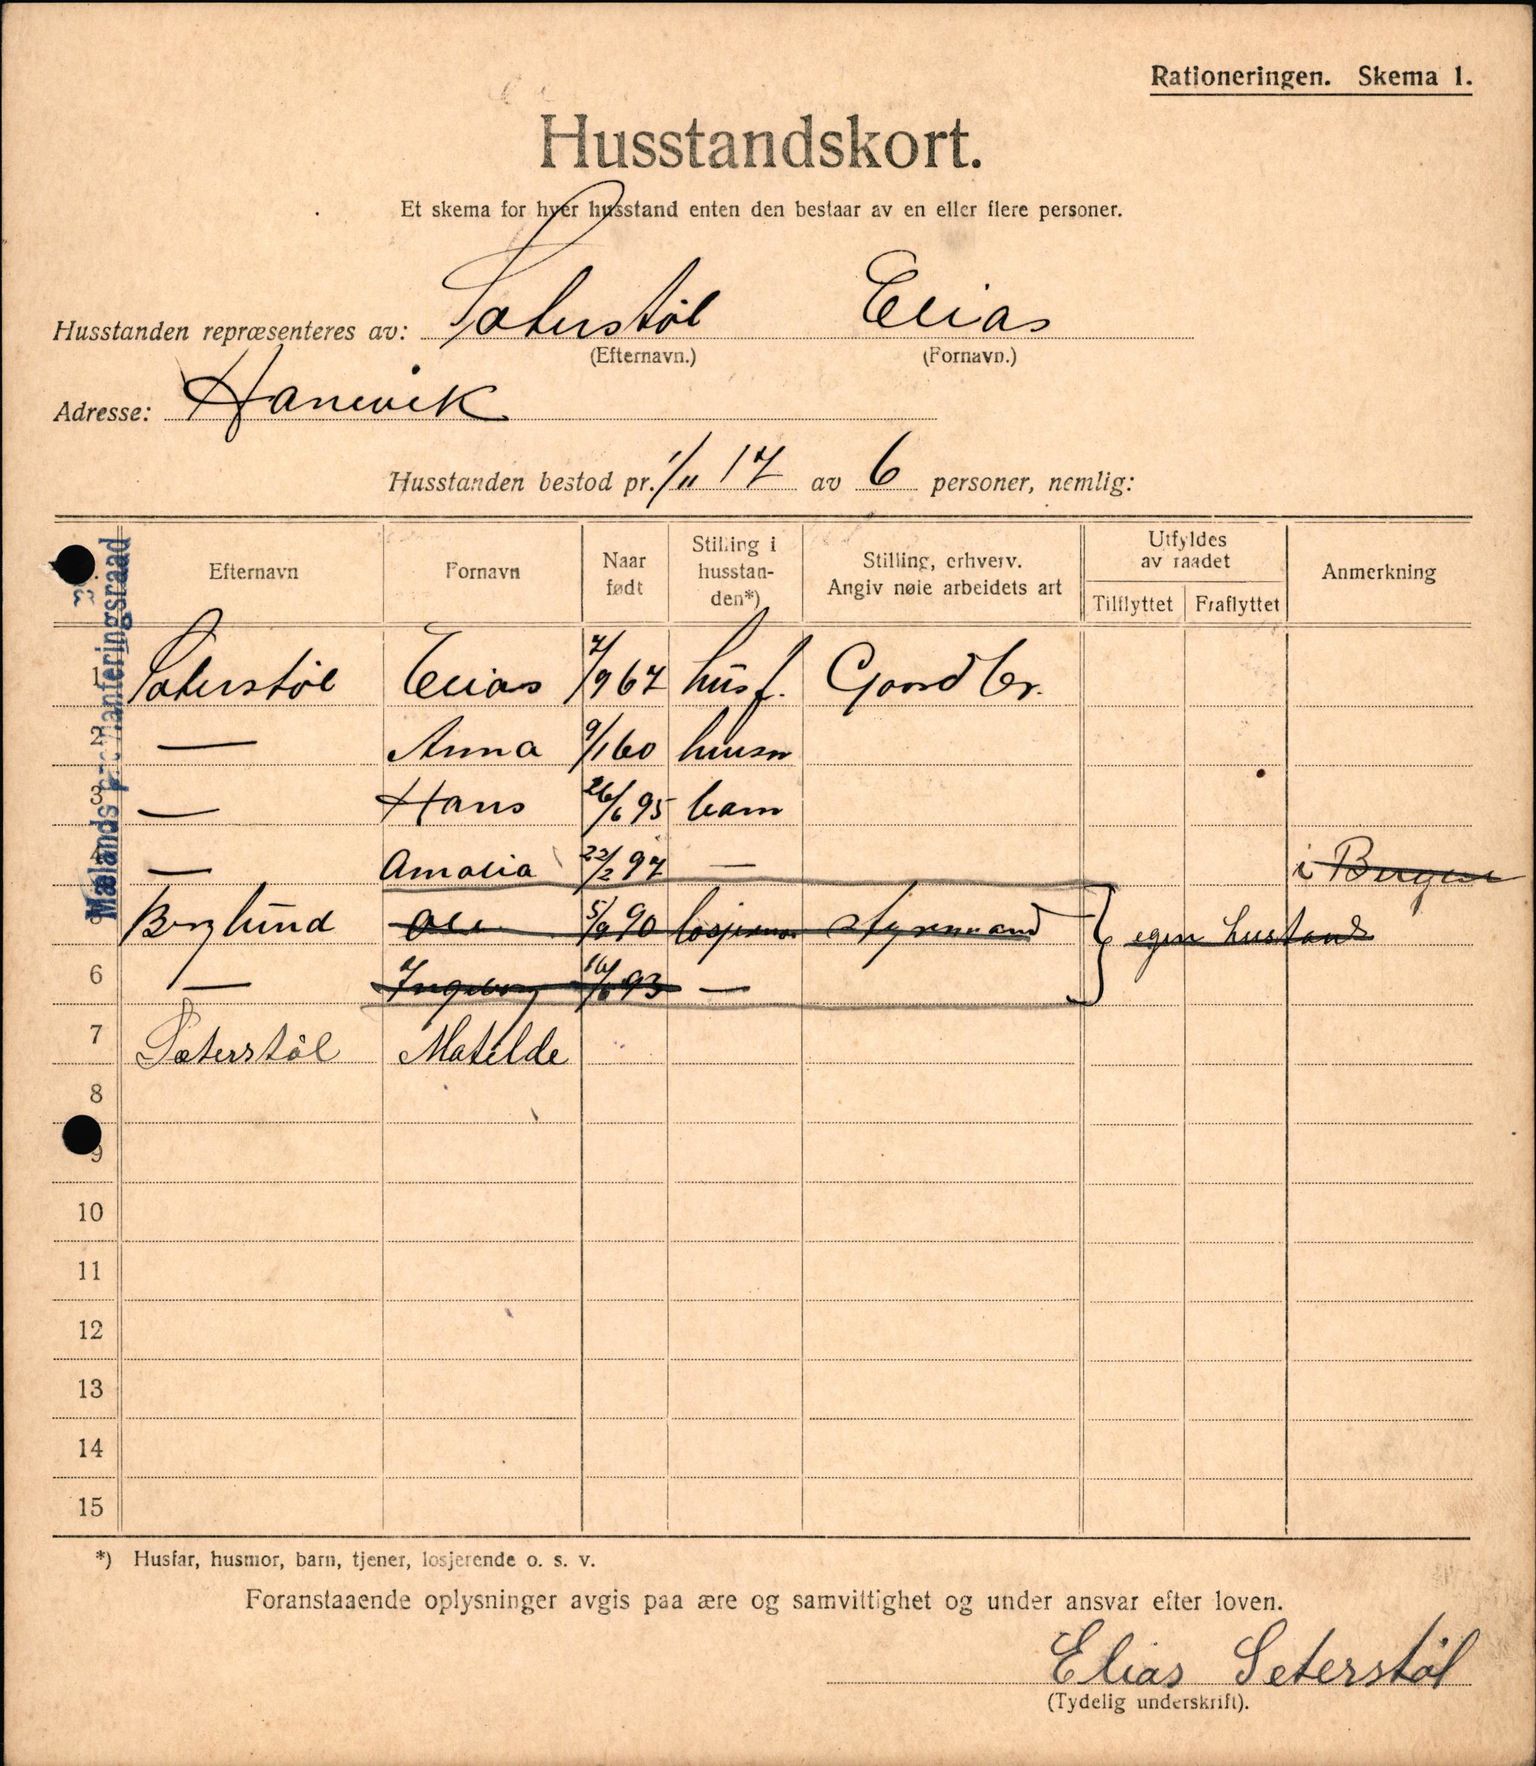 Rationeringen. Skema 1.
Husstandskort.
Et skema for hver husstand enten den bestaar av en eller flere personer.
Husstanden repræsenteres av: Sæterstøl Elias
(Efternavn.) (Fornavn.)
Adresse: Hanevik
Husstanden bestod pr. 1/11 17 av 6 personer, nemlig:
Efternavn Fornavn Naar født Stilling i husstanden*) Stilling, erhverv. Angiv nøie arbeidets art Utfyldes av raadet Tilflyttet Fraflyttet Anmerkning
Mælands provianteringsraad
1 Sæterstøl Elias 7/9 67 husf. Gaardbr.
2 — Anna 9/1 60 husm
3 — Hans 26/6 95 barn
— Amalia 22/2 97 — i Bergen
Berglund Ole 5/9 90 losjerende styrmand egen husstand
6 — Ingeborg 16/6 93 —
7 Sæterstøl Matilde
8
9
10
11
12
13
14
15
*) Husfar, husmor, barn, tjener, losjerende o. s. v.
Foranstaaende oplysninger avgis paa ære og samvittighet og under ansvar efter loven.
Elias Seterstøl
(Tydelig underskrift).